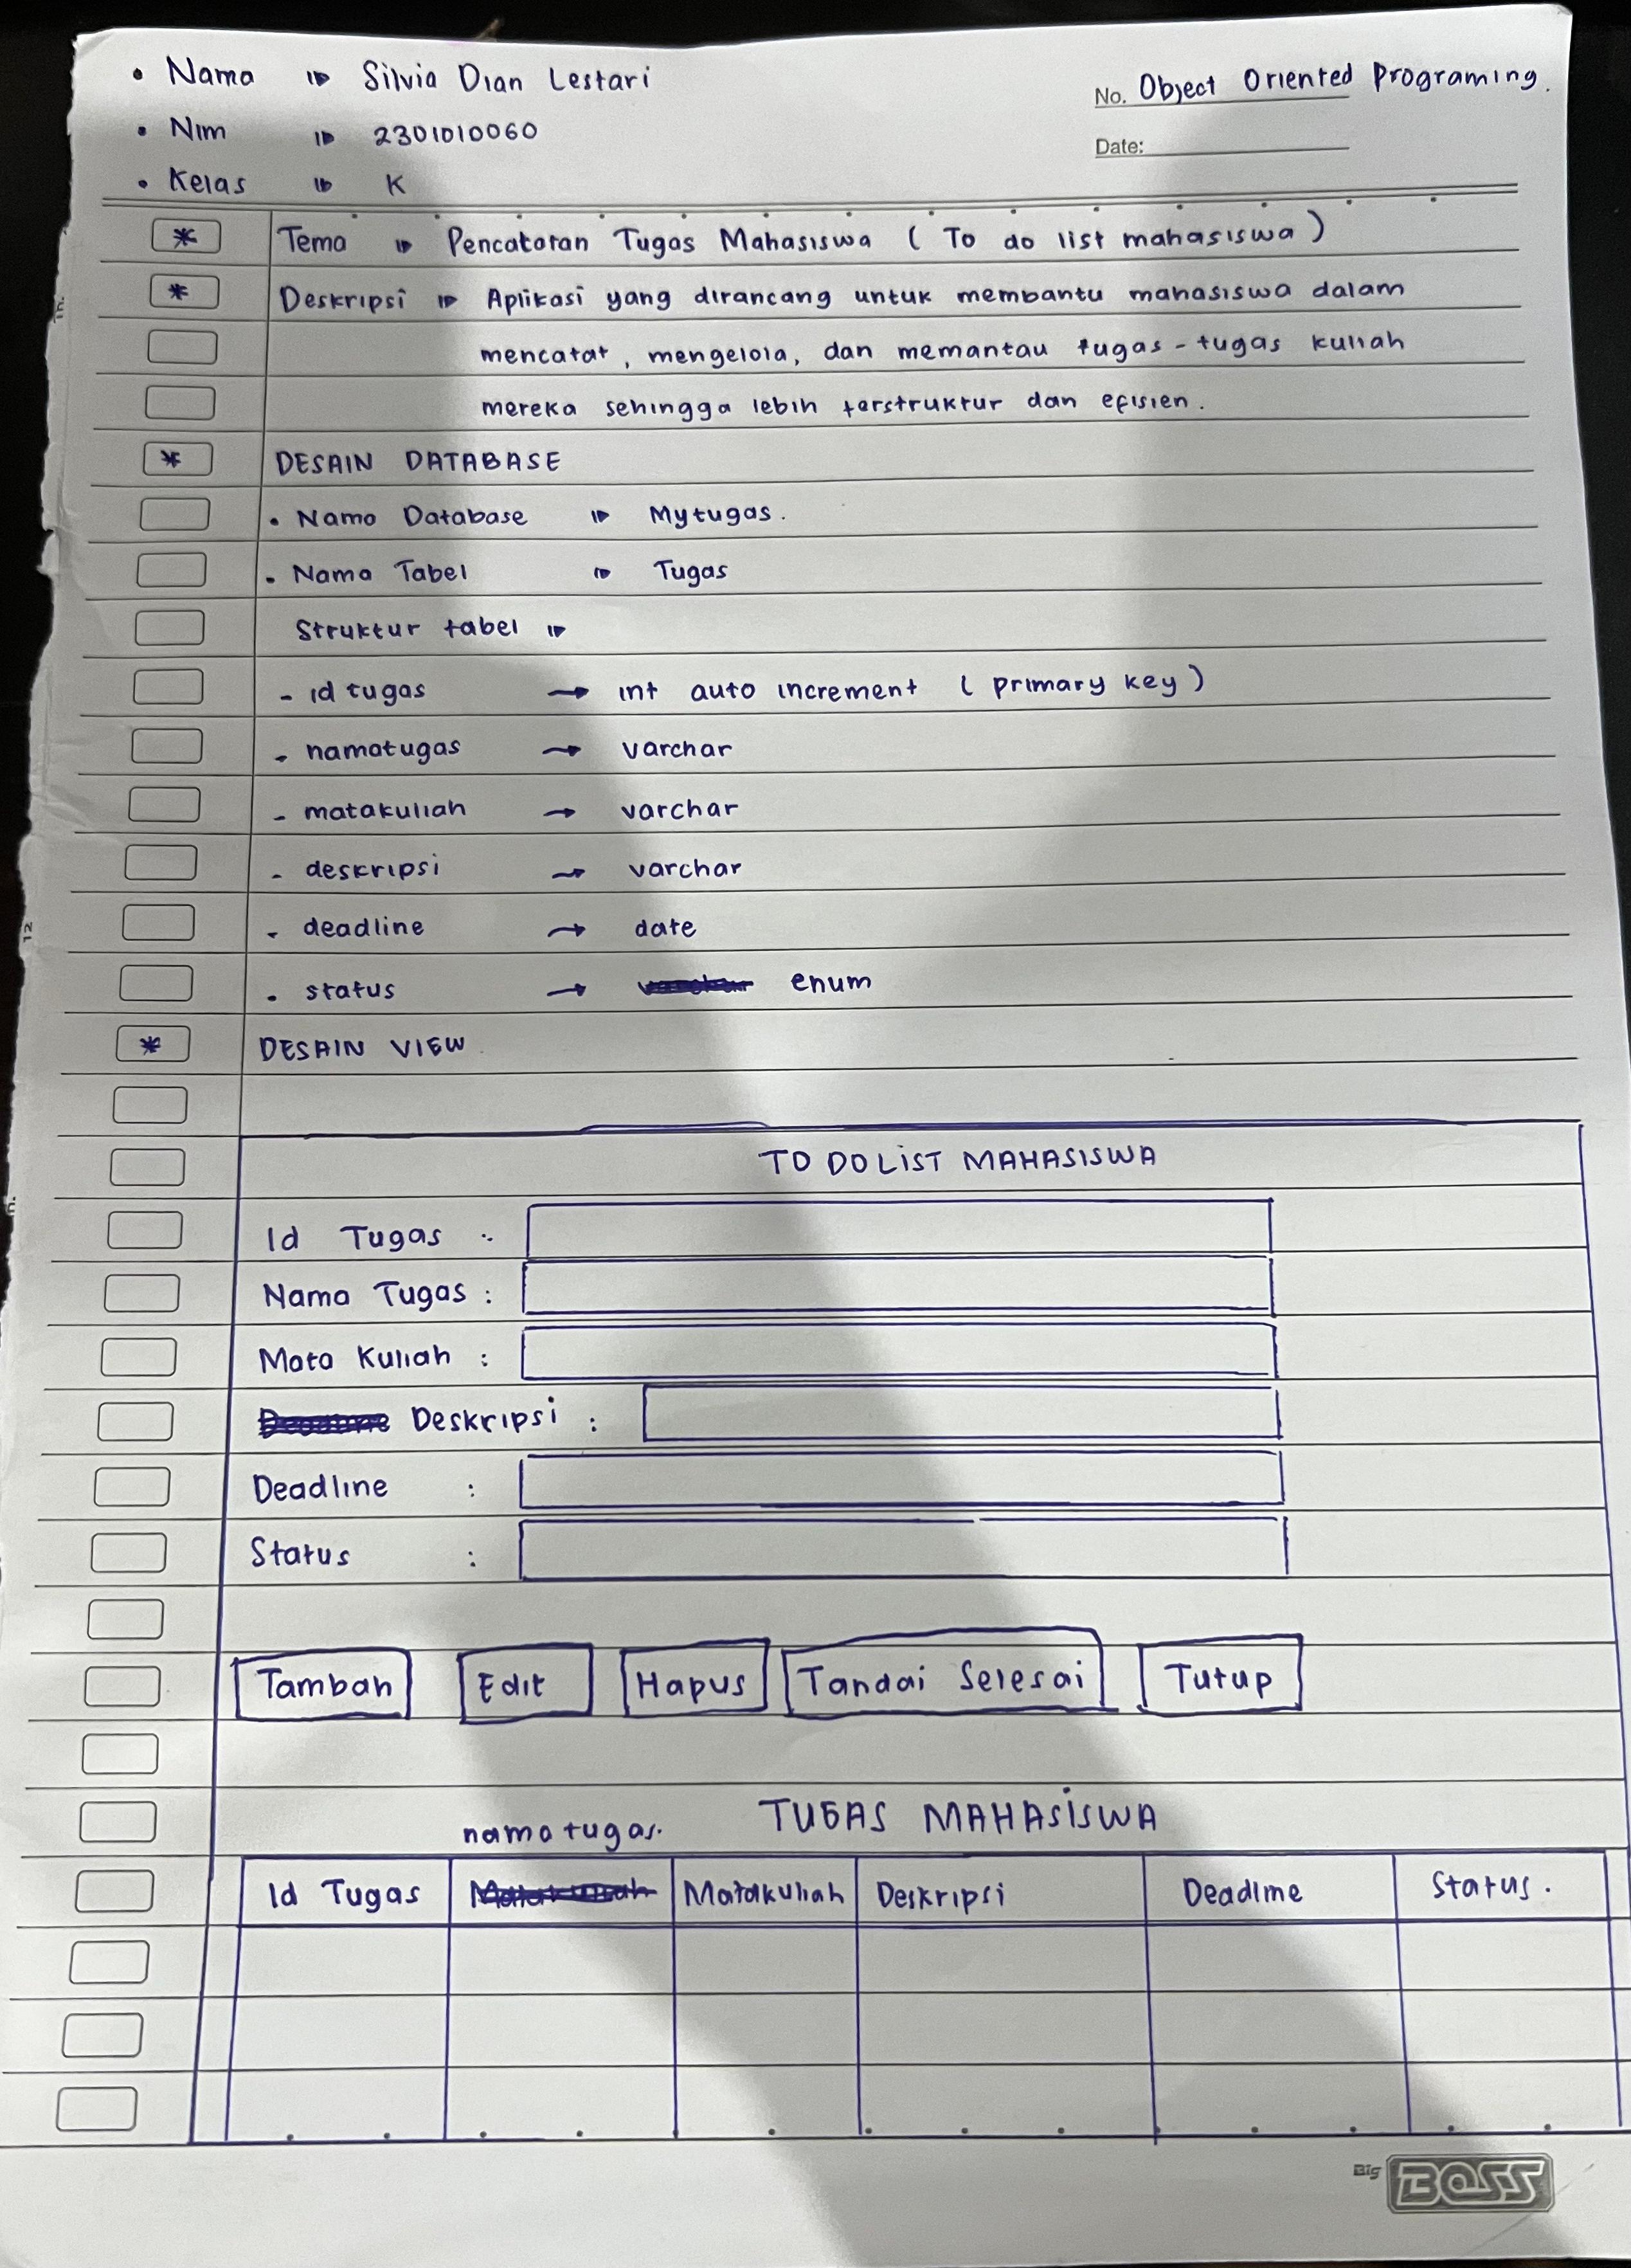 • Nama ⇒ Silvia Dian Lestari
No. Object Oriented Programing.
• Nim ⇒ 2301010060
Date:
• Kelas ⇒ K
* Tema ⇒ Pencatatan Tugas Mahasiswa ( To do list mahasiswa )
* Deskripsi ⇒ Aplikasi yang dirancang untuk membantu mahasiswa dalam
mencatat, mengelola, dan memantau tugas-tugas kuliah
mereka sehingga lebih terstruktur dan efisien.
* DESAIN DATABASE
• Nama Database ⇒ Mytugas.
• Nama Tabel ⇒ Tugas
Struktur tabel ⇒
- id tugas → int auto increment ( primary key )
- namatugas → varchar
- matakuliah → varchar
- deskripsi → varchar
- deadline → date
• status → enum
* DESAIN VIEW
TO DO LIST MAHASISWA
Id Tugas :
Nama Tugas :
Mata Kuliah :
Deskripsi :
Deadline :
Status :
Tambah Edit Hapus Tandai Selesai Tutup
TUGAS MAHASISWA
nama tugas.
Id Tugas Matakuliah Deskripsi Deadline Status.
Big BOSS